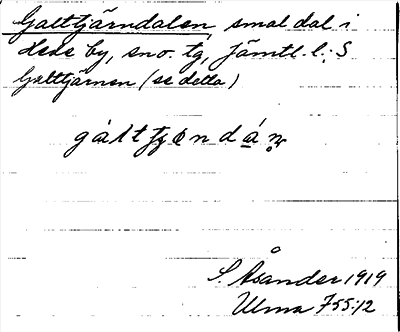 Galttjärndalen, smal dal i
Hede by, sno. tg, Jämtl. l.; S
Galttjärnen (se detta)
gáltjǫndán
S. Åsander 1919
Ulma 755:12